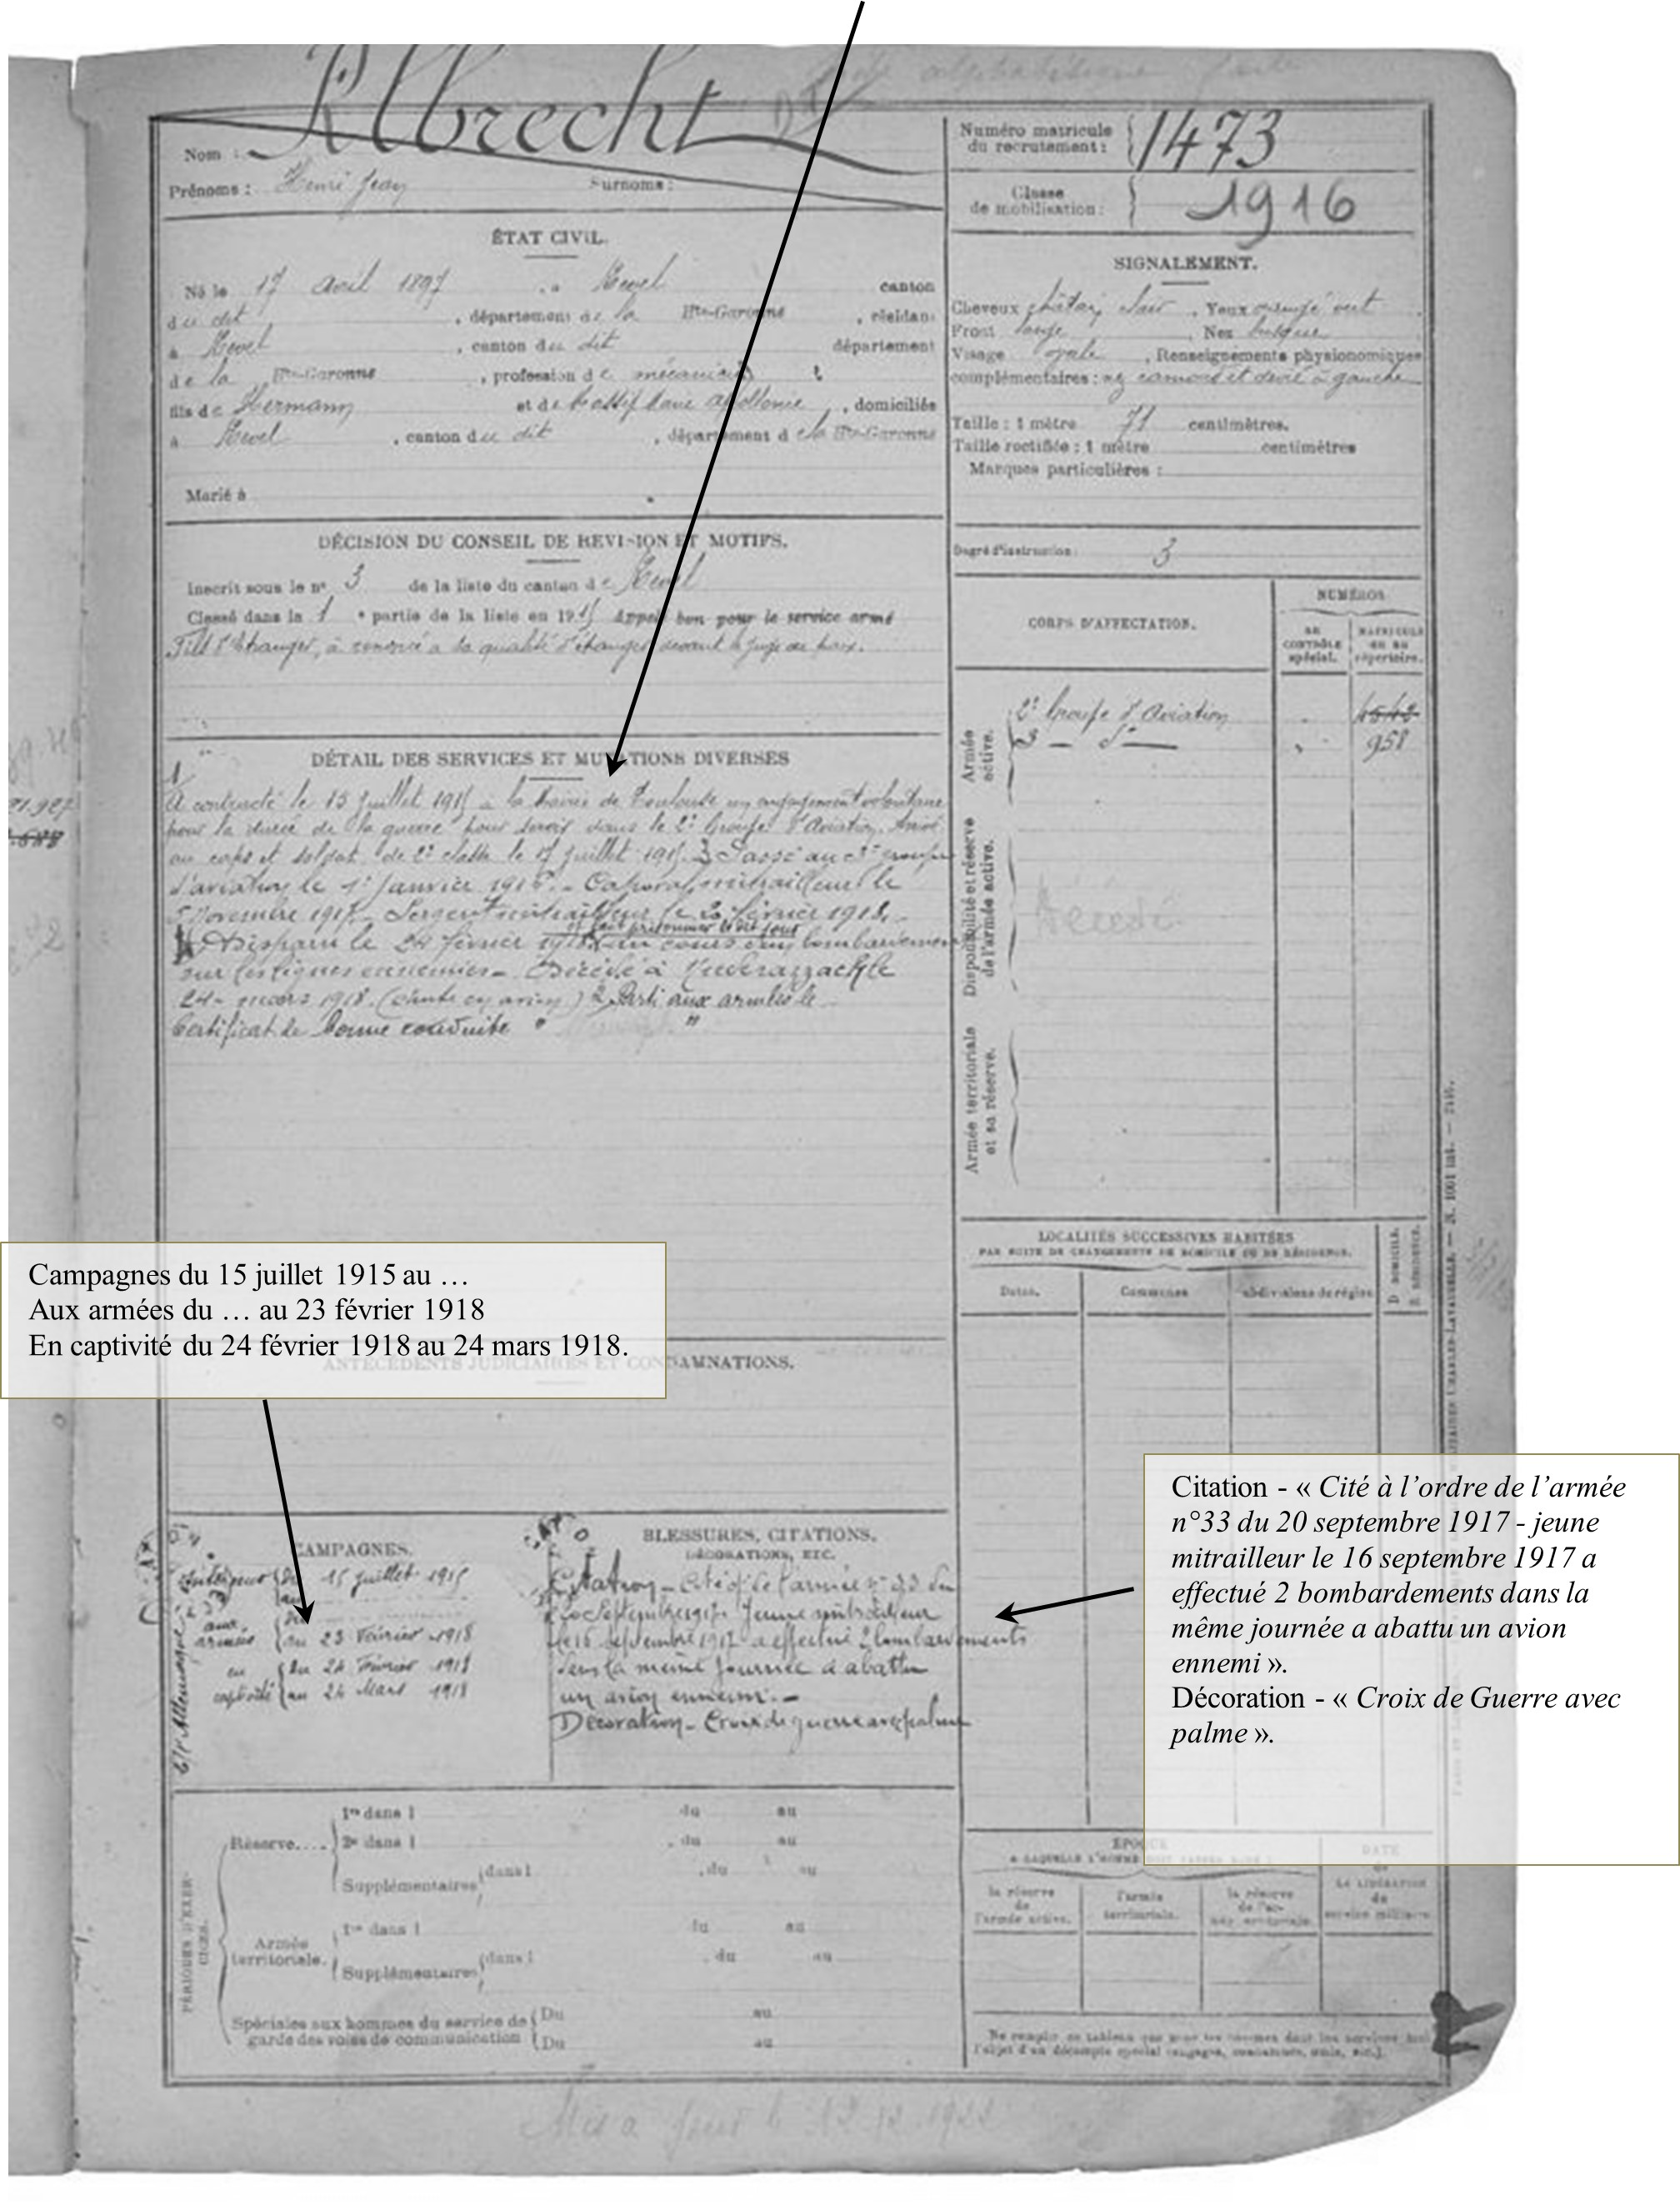 Albrecht
Nom :
Prénoms : Henri Jean Surnoms :
Numéro matricule du recrutement : 1473
Classe de mobilisation : 1916
ÉTAT CIVIL.
Né le 17 avril 1897, à Revel canton
du dit, département de la Hte-Garonne, résidant
à Revel, canton du dit département
de la Hte-Garonne, profession de mécanicien
fils de Hermann et de Marie, domiciliés
à Revel, canton du dit, département de la Hte-Garonne
Marié à
SIGNALEMENT.
Cheveux châtain clair. Yeux orangé vert
Front large, Nez busqué
Visage ovale, Renseignements physionomiques
complémentaires : nez camous et dévié à gauche
Taille : 1 mètre 71 centimètres.
Taille rectifiée : 1 mètre centimètres
Marques particulières :
Degré d'instruction : 3
DÉCISION DU CONSEIL DE REVISION ET MOTIFS.
Inscrit sous le n° 3 de la liste du canton de Revel
Classé dans la 1 e partie de la liste en 1915 Appelé bon pour le service armé
Fils d'étranger, a renoncé à la qualité d'étranger devant le juge de paix.
CORPS D'AFFECTATION.
NUMÉROS
AU CONTRÔLE spécial.
MATRICULE ou au répertoire.
Armée active.
2e Groupe d'Aviation 4542
3 — do — 958
Disponibilité et réserve de l'armée active.
Décédé
Armée territoriale et sa réserve.
DÉTAIL DES SERVICES ET MUTATIONS DIVERSES
A contracté le 15 juillet 1915 à la mairie de Toulouse un engagement volontaire
pour la durée de la guerre pour servir dans le 2e Groupe d'Aviation. Arrivé
au corps et soldat de 2e classe le 17 juillet 1915. Passé au 3e groupe
d'aviation le 1er Janvier 1916. - Caporal mitrailleur le
5 Novembre 1917 - Sergent mitrailleur le 20 février 1918. -
et fait prisonnier le dit jour
Disparu le 24 février 1918 au cours d'un bombardement
sur les lignes ennemies - Décédé à le
24 - mars 1918. (chute en avion) 2 Parti aux armées le
Certificat de bonne conduite " "
LOCALITÉS SUCCESSIVES HABITÉES
PAR SUITE DE CHANGEMENTS DE DOMICILE OU DE RÉSIDENCE.
Dates.
Communes
Subdivisions de région
D DOMICILE.
R RÉSIDENCE.
Campagnes du 15 juillet 1915 au …
Aux armées du … au 23 février 1918
En captivité du 24 février 1918 au 24 mars 1918.
ANTÉCÉDENTS JUDICIAIRES ET CONDAMNATIONS.
Citation - « Cité à l’ordre de l’armée
n°33 du 20 septembre 1917 - jeune
mitrailleur le 16 septembre 1917 a
effectué 2 bombardements dans la
même journée a abattu un avion
ennemi ».
Décoration - « Croix de Guerre avec
palme ».
CAMPAGNES.
C/ l'Allemagne
Intérieur du 15 juillet 1915
au
aux armées du
au 23 Février 1918
en captivité du 24 Février 1918
au 24 Mars 1918
BLESSURES, CITATIONS,
DÉCORATIONS, ETC.
Citation - Cité à l'o de l'armée n° 33 du
20 septembre 1917 - Jeune mitrailleur
le 16 septembre 1917 a effectué 2 bombardements
dans la même journée a abattu
un avion ennemi. -
Décoration - Croix de guerre avec palme
PÉRIODES D'EXERCICES.
Réserve....
1re dans l du au
2e dans l du au
Supplémentaires dans l du au
Armée territoriale.
1re dans l du au
Supplémentaires dans l du au
Spéciales aux hommes du service de Du au
garde des voies de communication Du au
ÉPOQUE
la réserve de l'armée active.
l'armée territoriale.
DATE
de
LA LIBÉRATION
du
service militaire.
Mis à jour le 12.12.1922